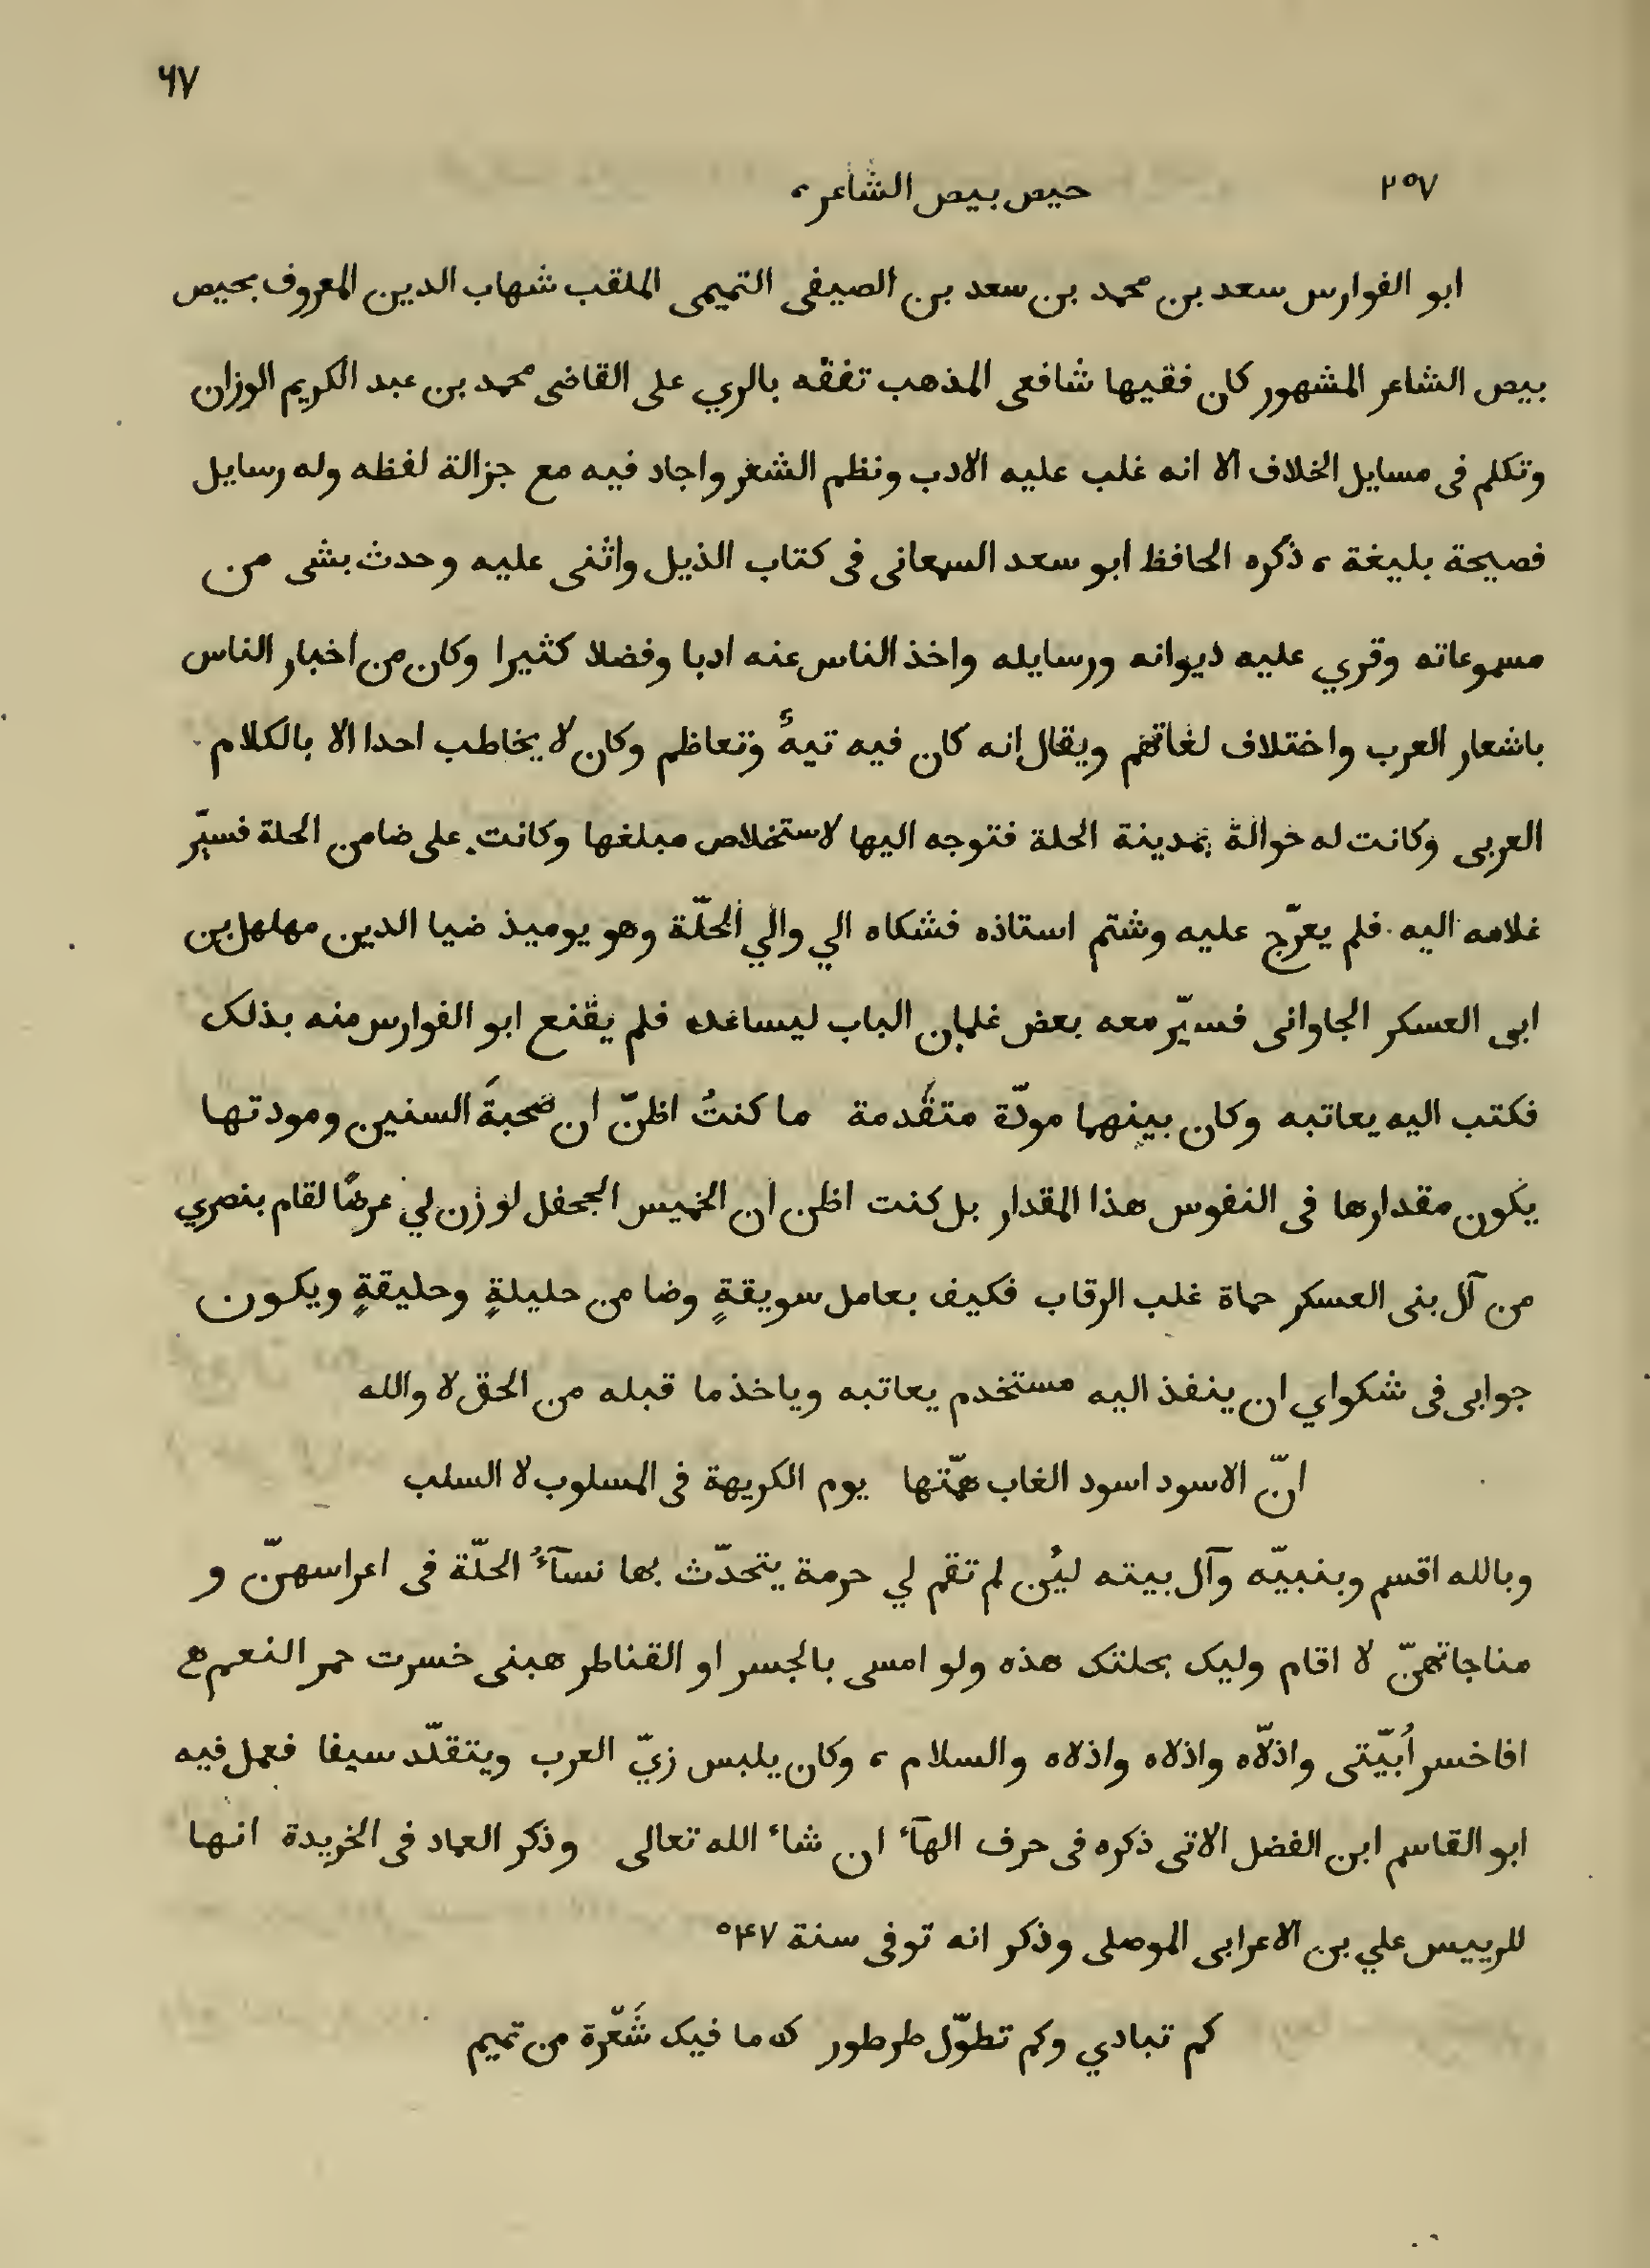 ٦٧
٢٥٧ حيص بيص الشاعر ،
ابو الفوارس سعد بن محمد بن سعد بن الصيفى التميمى الملقب شهاب الدين المعروف بحيص
بيص الشاعر المشهور كان فقيها شافعى المذهب تفقه بالري على القاضى محمد بن عبد الكريم الوزان
وتكلم فى مسايل الخلاف الا انه غلب عليه الادب ونظم الشعر واجاد فيه مع جزالة لفظه وله رسايل
فصيحة بليغة ، ذكره الحافظ ابو سعد السمعانى فى كتاب الذيل واثنى عليه وحدث بشى من
مسموعاته وقري عليه ديوانه ورسايله واخذ الناس عنه ادبا وفضلا كثيرا وكان من اخبار الناس
باشعار العرب واختلاف لغاتهم ويقال انه كان فيه تيهٌ وتعاظم وكان لا يخاطب احدا الا بالكلام
العربى وكانت له حوالة بمدينة الحلة فتوجه اليها لاستخلاص مبلغها وكانت على ضامن الحلة فسيّر
غلامه اليه فلم يعرّج عليه وشتم استاذه فشكاه الي والي الحلّة وهو يوميذ ضيا الدين مهلهل بن
ابى العسكر الجاوانى فسيّر معه بعض غلمان الباب ليساعده فلم يقنع ابو الفوارس منه بذلك
فكتب اليه يعاتبه وكان بينهما مودّة متقدمة ما كنتُ اظنّ ان صحبةَ السنين ومودتها
يكون مقدارها فى النفوس هذا المقدار بل كنت اظن ان الخميس الجحفل لو زن لي عرضًا لقام بنصري
من آل بنى العسكر حماة غلب الرقاب فكيف بعامل سويقةٍ وضامن حليلةٍ وحليقةٍ ويكون
جوابى فى شكواي ان ينفذ اليه مستخدم يعاتبه وياخذ ما قبله من الحق لا والله
انّ الاسود اسود الغاب همّتها يوم الكريهة فى المسلوب لا السلب
وبالله اقسم وبنبيّه وآل بيته ليُن لم تقم لي حرمة يتحدّث بها نسآءُ الحلّة فى اعراسهنّ و
مناجاتهنّ لا اقام وليك بحلتك هذه ولو امسى بالجسر او القناطر هبنى خسرت حمر النعم
افاخسر أبيّتى واذلّاه واذلاه واذلاه والسلام ، وكان يلبس زيّ العرب ويتقلّد سيفا فعمل فيه
ابو القاسم ابن الفضل الاتى ذكره فى حرف الهآء ان شاء الله تعالى وذكر العماد فى الخريدة انها
للرييس علي بن الاعرابى الموصلى وذكر انه توفى سنة ٥۴٧
كم تبادي وكم تطوّل طرطور ك ما فيك شَعْرة من تميم